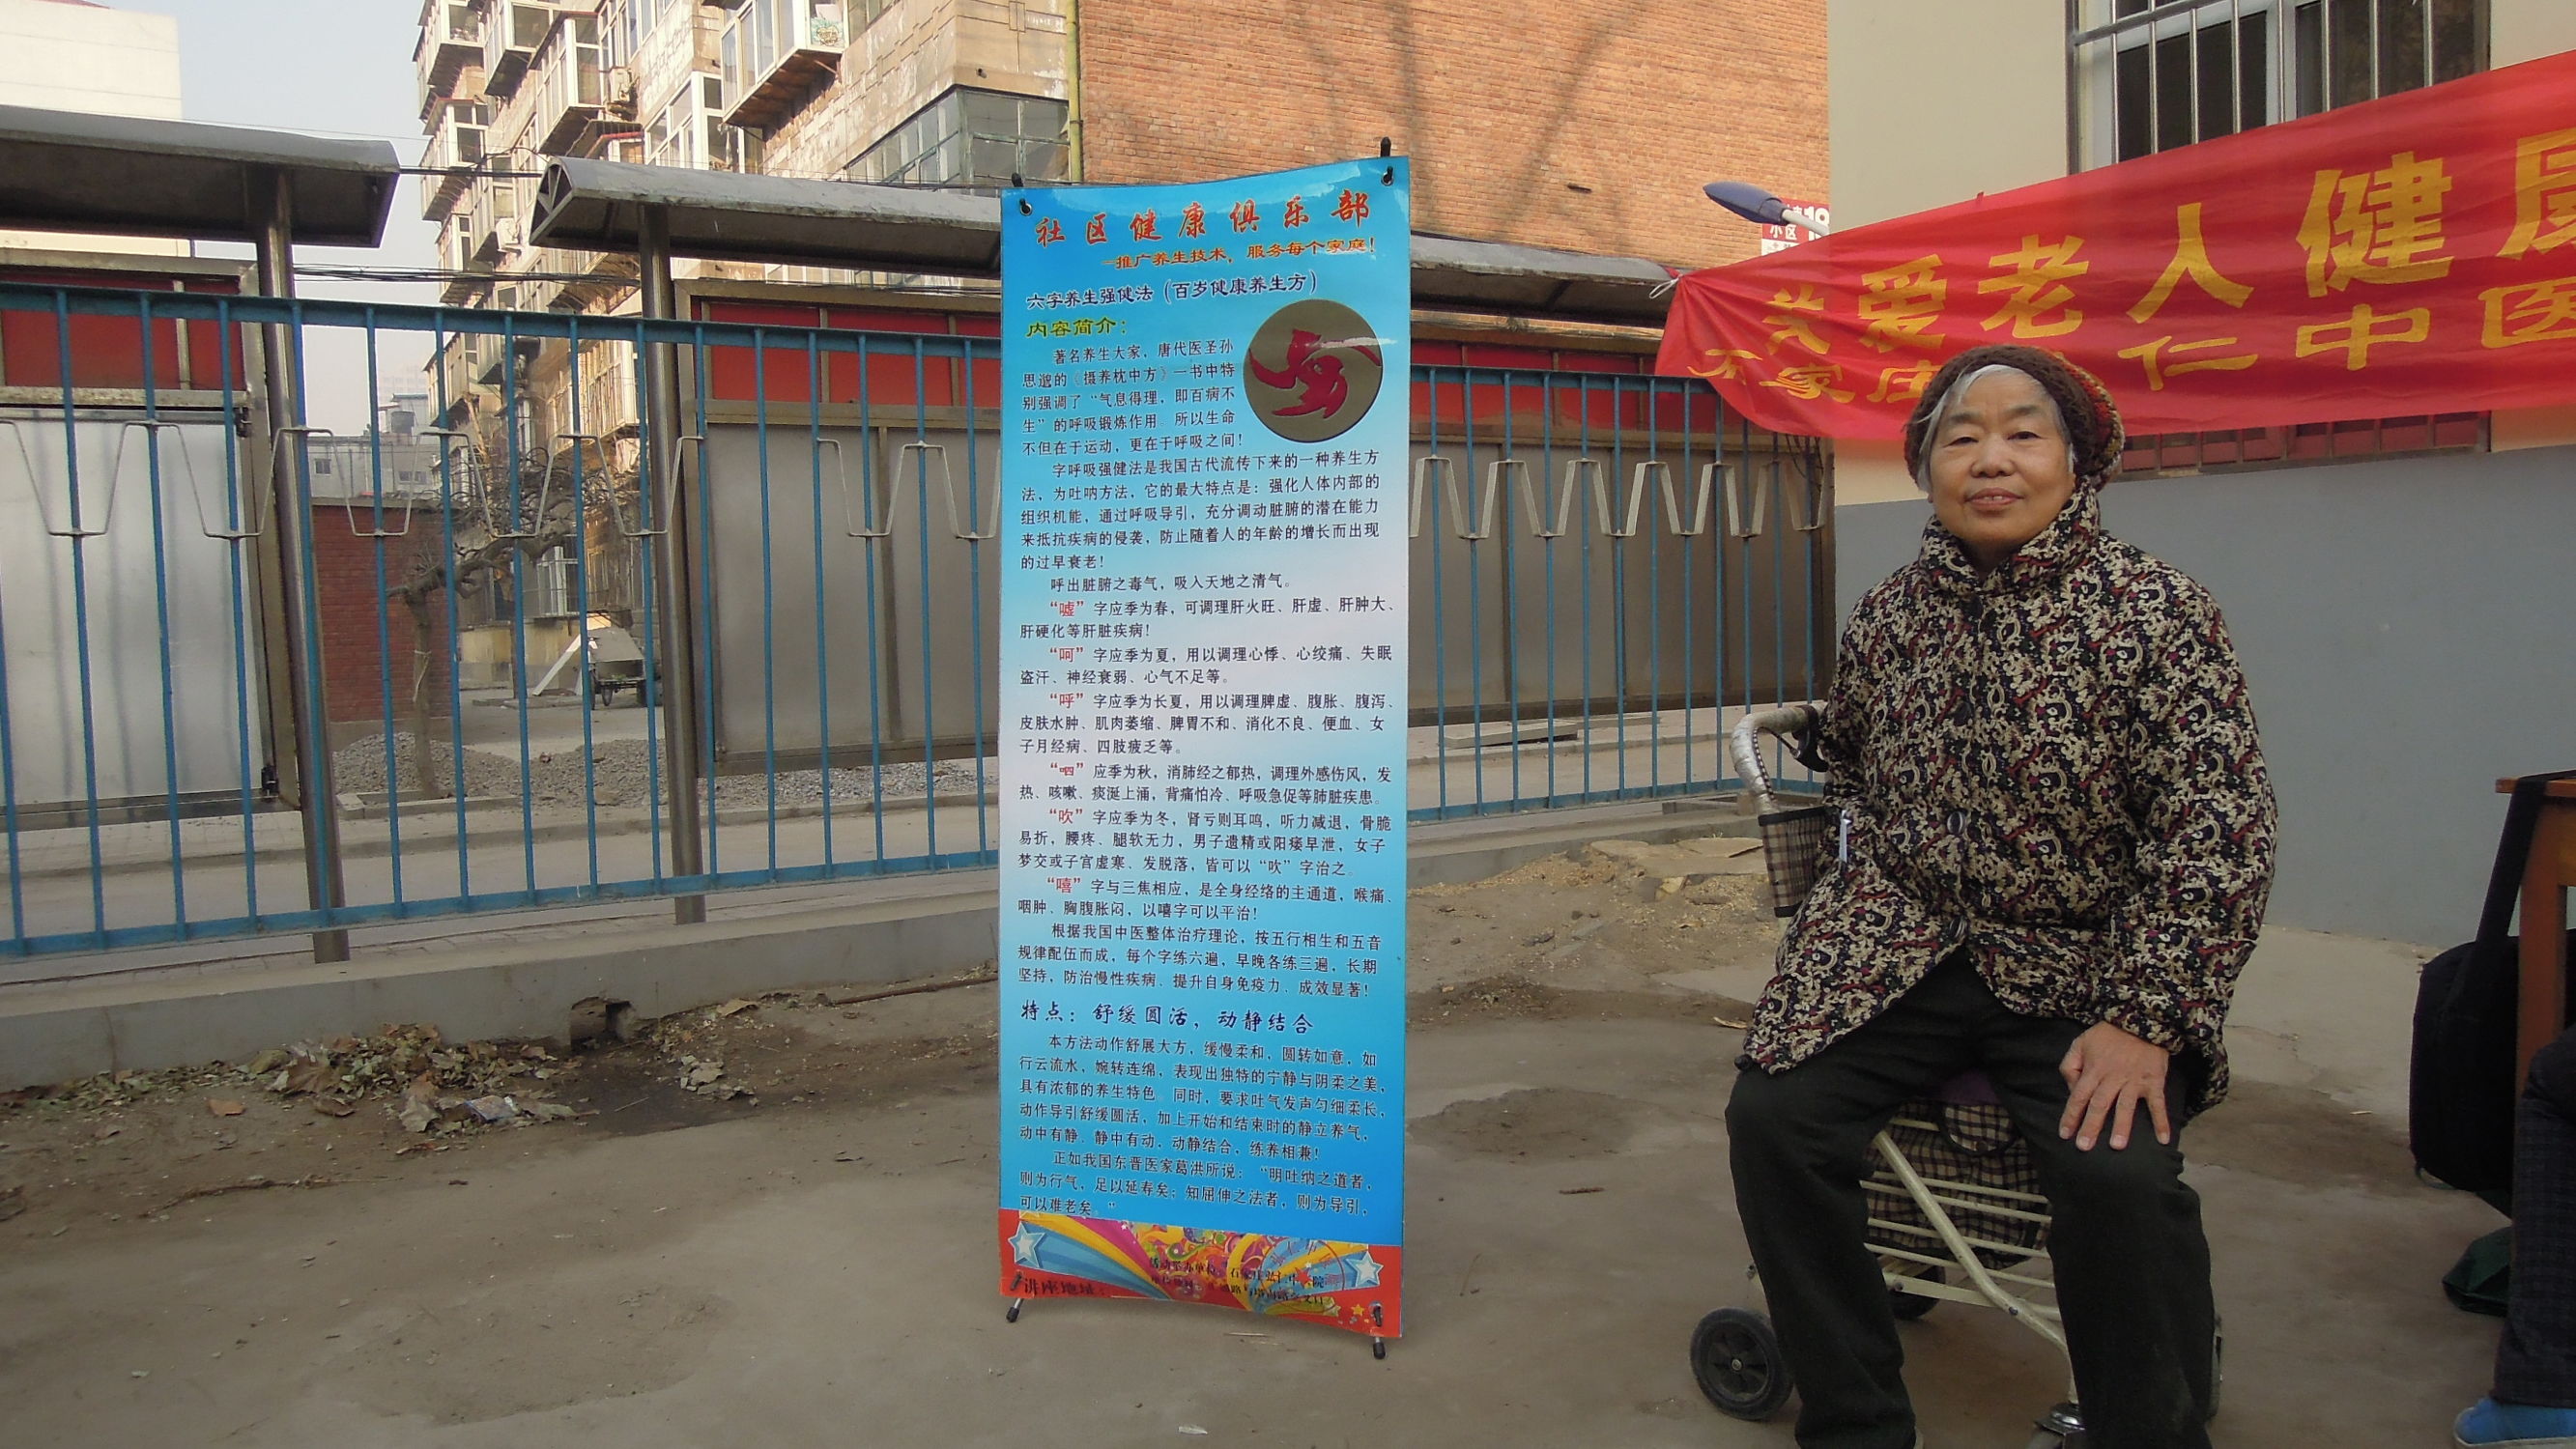 社区健康俱乐部
—推广养生技术，服务每个家庭！
六字养生强健法（百岁健康养生方）
内容简介：
著名养生大家，唐代医圣孙
思邈的《摄养枕中方》一书中特
别强调了“气息得理，即百病不
生”的呼吸锻炼作用。所以生命
不但在于运动，更在于呼吸之间！
字呼吸强健法是我国古代流传下来的一种养生方
法，为吐呐方法，它的最大特点是：强化人体内部的
组织机能，通过呼吸导引，充分调动脏腑的潜在能力
来抵抗疾病的侵袭，防止随着人的年龄的增长而出现
的过早衰老！
呼出脏腑之毒气，吸入天地之清气。
“嘘”字应季为春，可调理肝火旺、肝虚、肝肿大、
肝硬化等肝脏疾病！
“呵”字应季为夏，用以调理心悸、心绞痛、失眠
盗汗、神经衰弱、心气不足等。
“呼”字应季为长夏，用以调理脾虚、腹胀、腹泻、
皮肤水肿、肌肉萎缩、脾胃不和、消化不良、便血、女
子月经病、四肢疲乏等。
“呬”应季为秋，消肺经之郁热，调理外感伤风，发
热、咳嗽、痰涎上涌，背痛怕冷、呼吸急促等肺脏疾患。
“吹”字应季为冬，肾亏则耳鸣，听力减退，骨脆
易折，腰疼、腿软无力，男子遗精或阳痿早泄，女子
梦交或子宫虚寒、发脱落，皆可以“吹”字治之。
“嘻”字与三焦相应，是全身经络的主通道，喉痛、
咽肿、胸腹胀闷，以嘻字可以平治！
根据我国中医整体治疗理论，按五行相生和五音
规律配伍而成，每个字练六遍，早晚各练三遍，长期
坚持，防治慢性疾病、提升自身免疫力、成效显著！
特点：舒缓圆活，动静结合
本方法动作舒展大方，缓慢柔和，圆转如意，如
行云流水，婉转连绵，表现出独特的宁静与阴柔之美，
具有浓郁的养生特色。同时，要求吐气发声匀细柔长，
动作导引舒缓圆活，加上开始和结束时的静立养气，
动中有静、静中有动，动静结合，练养相兼！
正如我国东晋医家葛洪所说：“明吐纳之道者，
则为行气，足以延寿矣；知屈伸之法者，则为导引，
可以难老矣。”
活动承办单位：石家庄弘仁中医院
讲座地址：
关爱老人健康
石家庄弘仁中医
小区